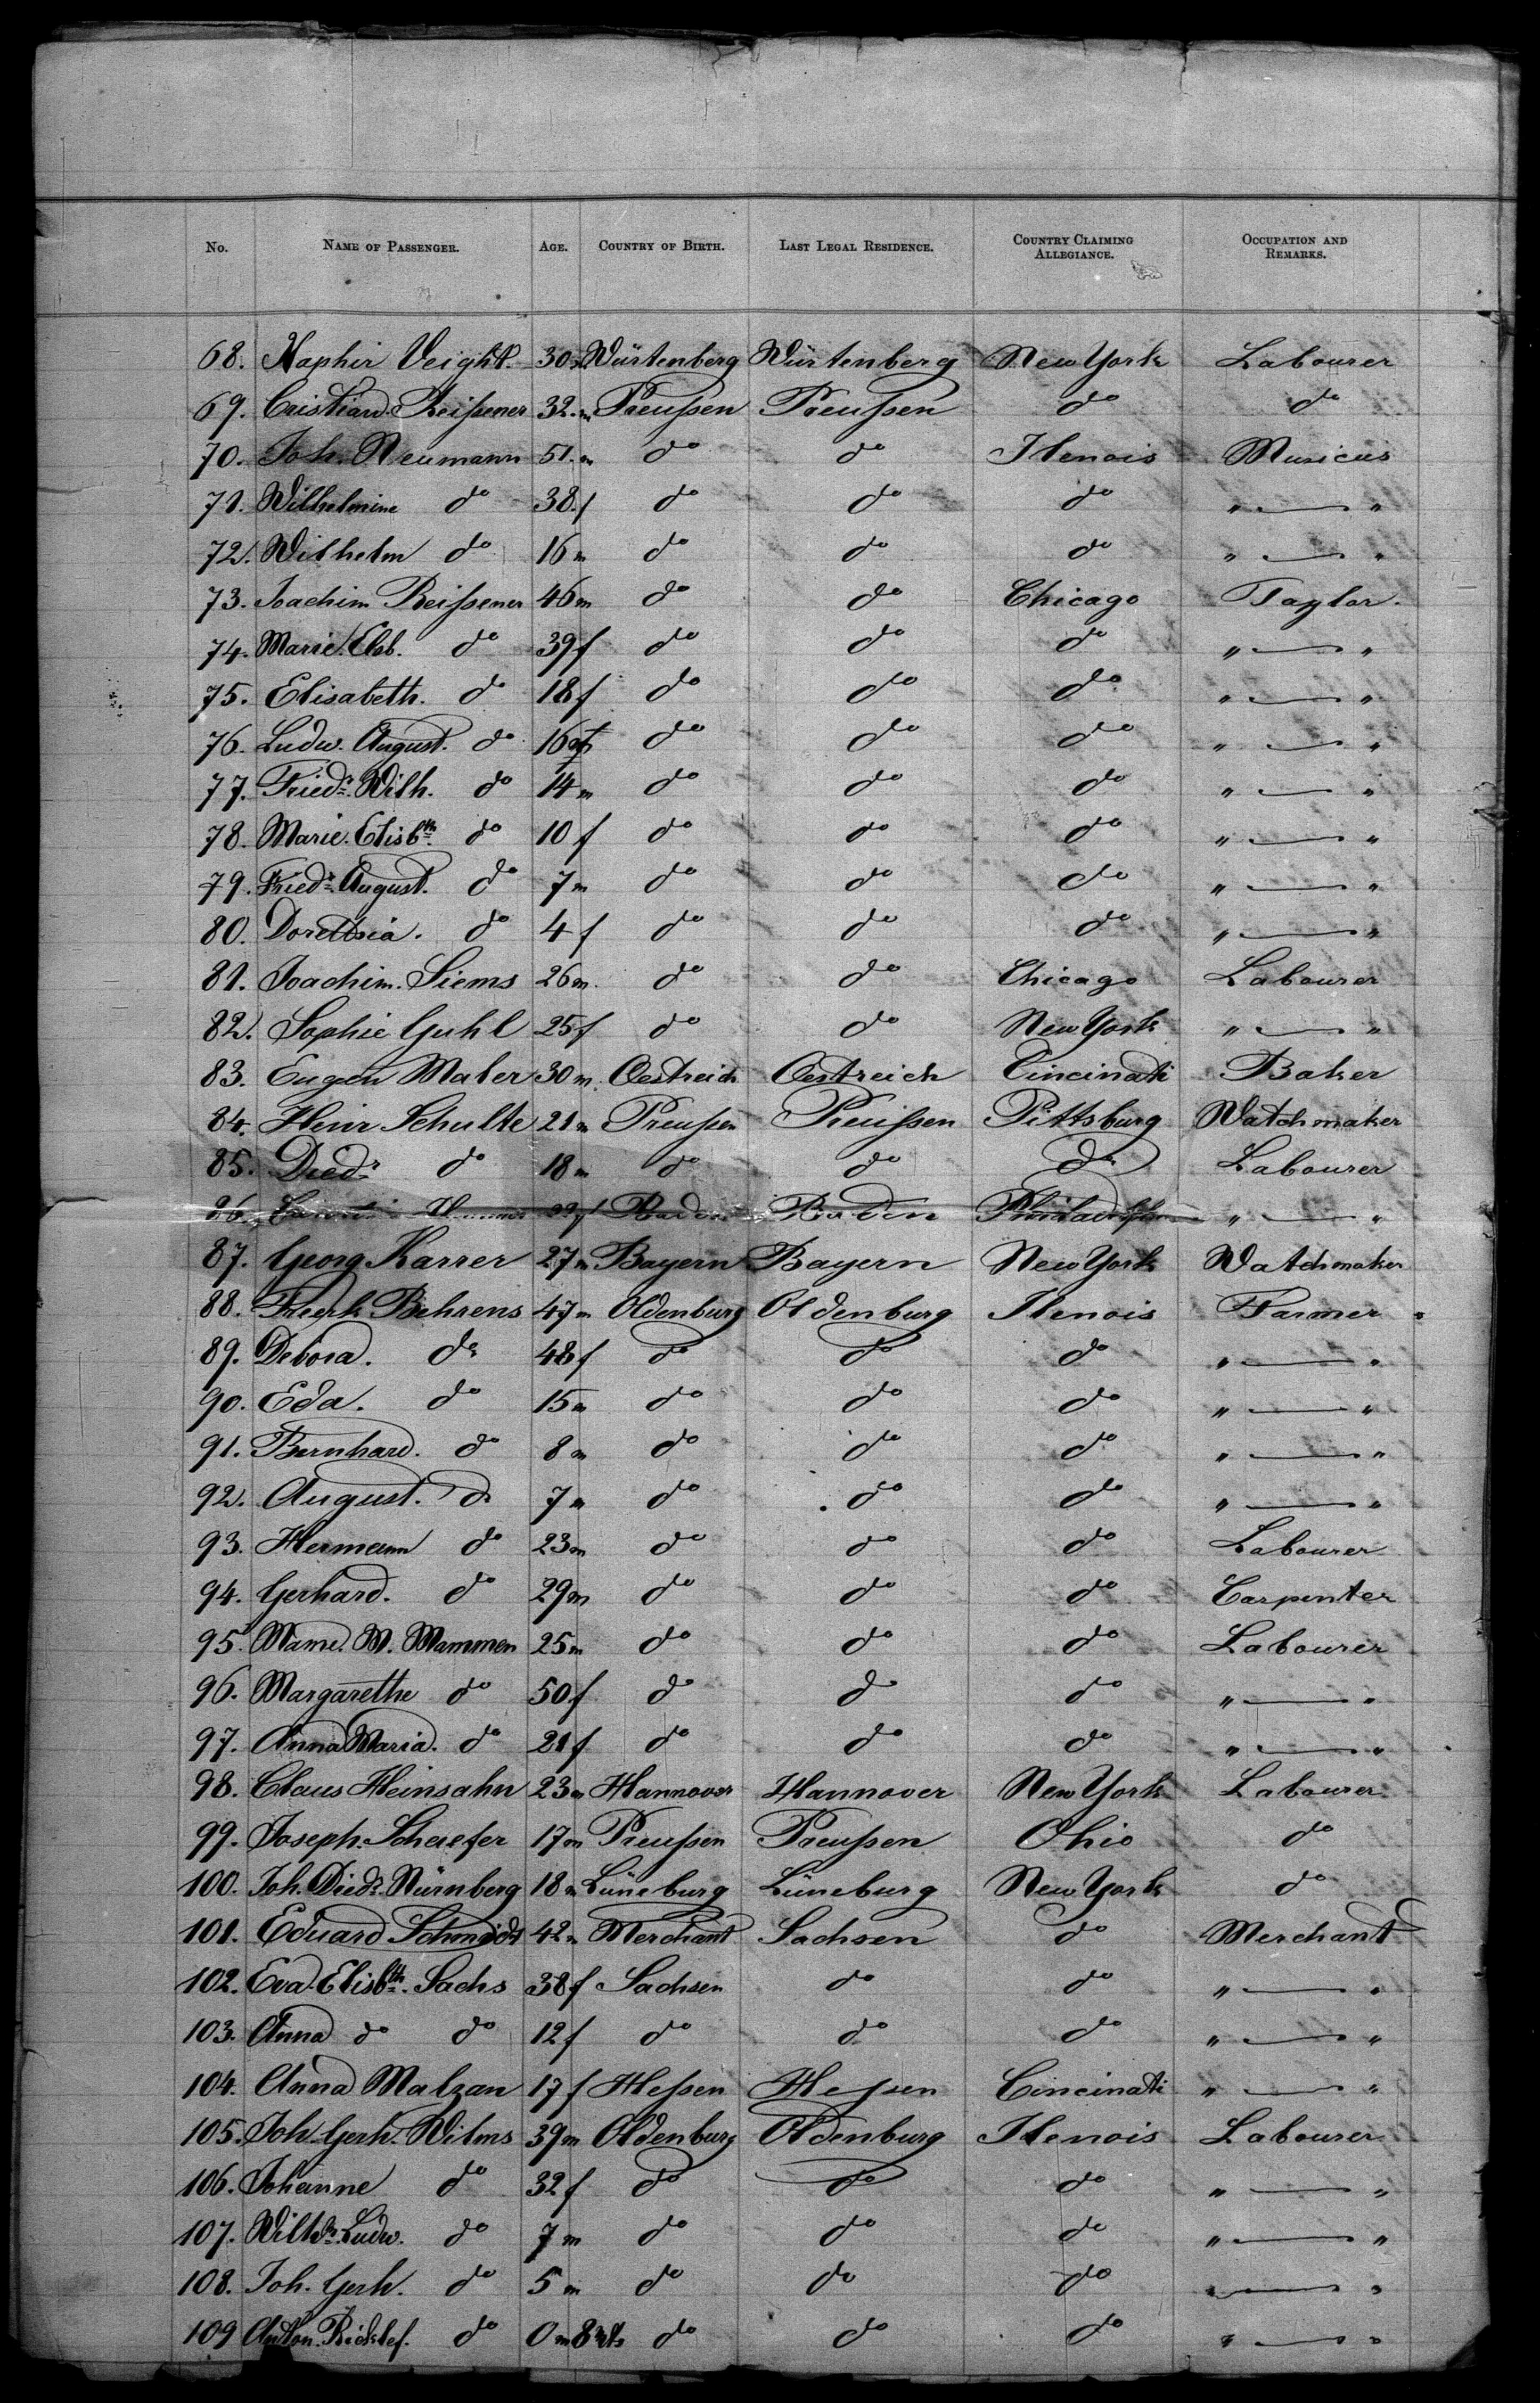 No. NAME OF PASSENGER. AGE. COUNTRY OF BIRTH. LAST LEGAL RESIDENCE. COUNTRY CLAIMING ALLEGIANCE. OCCUPATION AND REMARKS.
68. Veight. 30 Würtenberg Würtenberg New York Labourer
69. Reißener 32. m Preußen Preußen do do
70. Joh. Neumann 51. m do do Ilenois Musicus
71. Wilhelmine do 38. f do do do " — "
72. Wilhelm do 16 m do do do " — "
73. Joachim Reißener 46 m do do Chicago Taylor.
74. Marie. Elsb. do 39 f do do do " — "
75. Elisabeth. do 18 f do do do " — "
76. Ludw. August. do 16 do do do " — "
77. Friedr. Wilh. do 14 m do do do " — "
78. Marie. Elisbth. do 10 f do do do " — "
79. Friedr. August. do 7 m do do do " — "
80. do 4 f do do do " — "
81. Joachim. Siems 26 m. do do Chicago Labourer
82. Sophie Guhl 25 f do do New York " — "
83. Eugen Maler 30 m. Oestreich Oestreich Cincinati Baker
84. Heinr Schulte 21 m Preußen Preußen Pittsburg Watchmaker
85. Diedr do 18 m do do do Labourer
86. f Baden Baden Philadelphia " — "
87. Georg Karrer 27 m Bayern Bayern New York Watchmaker
88. Freerk Behrens 47 m Oldenburg Oldenburg Ilenois Farmer
89. Debora. do 48 f do do do " — "
90. Eda. do 15 m do do do " — "
91. Bernhard. do 8 m do do do " — "
92. August. do 7 m do do do " — "
93. Hermann do 23 m do do do Labourer
94. Gerhard. do 29 m do do do Carpenter
95. Mame. M. Mammen 25 m do do do Labourer
96. Margarethe do 50 f do do do " — "
97. Anna Maria. do 21 f do do do " — "
98. Claus Heinsahn 23 m Hannover Hannover New York Labourer
99. Joseph. Schaefer 17 m Preußen Preußen Ohio do
100. Joh. Diedr. Nürnberg 18 m Lüneburg Lüneburg New York do
101. Eduard Schmidt 42 m Merchant Sachsen do Merchant
102. Eva. Elisbth. Sachs 38 f Sachsen do do " — "
103. Anna do do 12 f do do do " — "
104. Anna Malzan 17 f Heßen Heßen Cincinati " — "
105. Joh. Gerh. Wilms 39 m Oldenburg Oldenburg Ilenois Labourer
106. Johanne do 32 f do do do " — "
107. Ludw. do 7 m do do do " — "
108. Joh. Gerh. do 5 m do do do " — "
109 Anton. Ricklef. do 0 m 8 mts do do do " — "